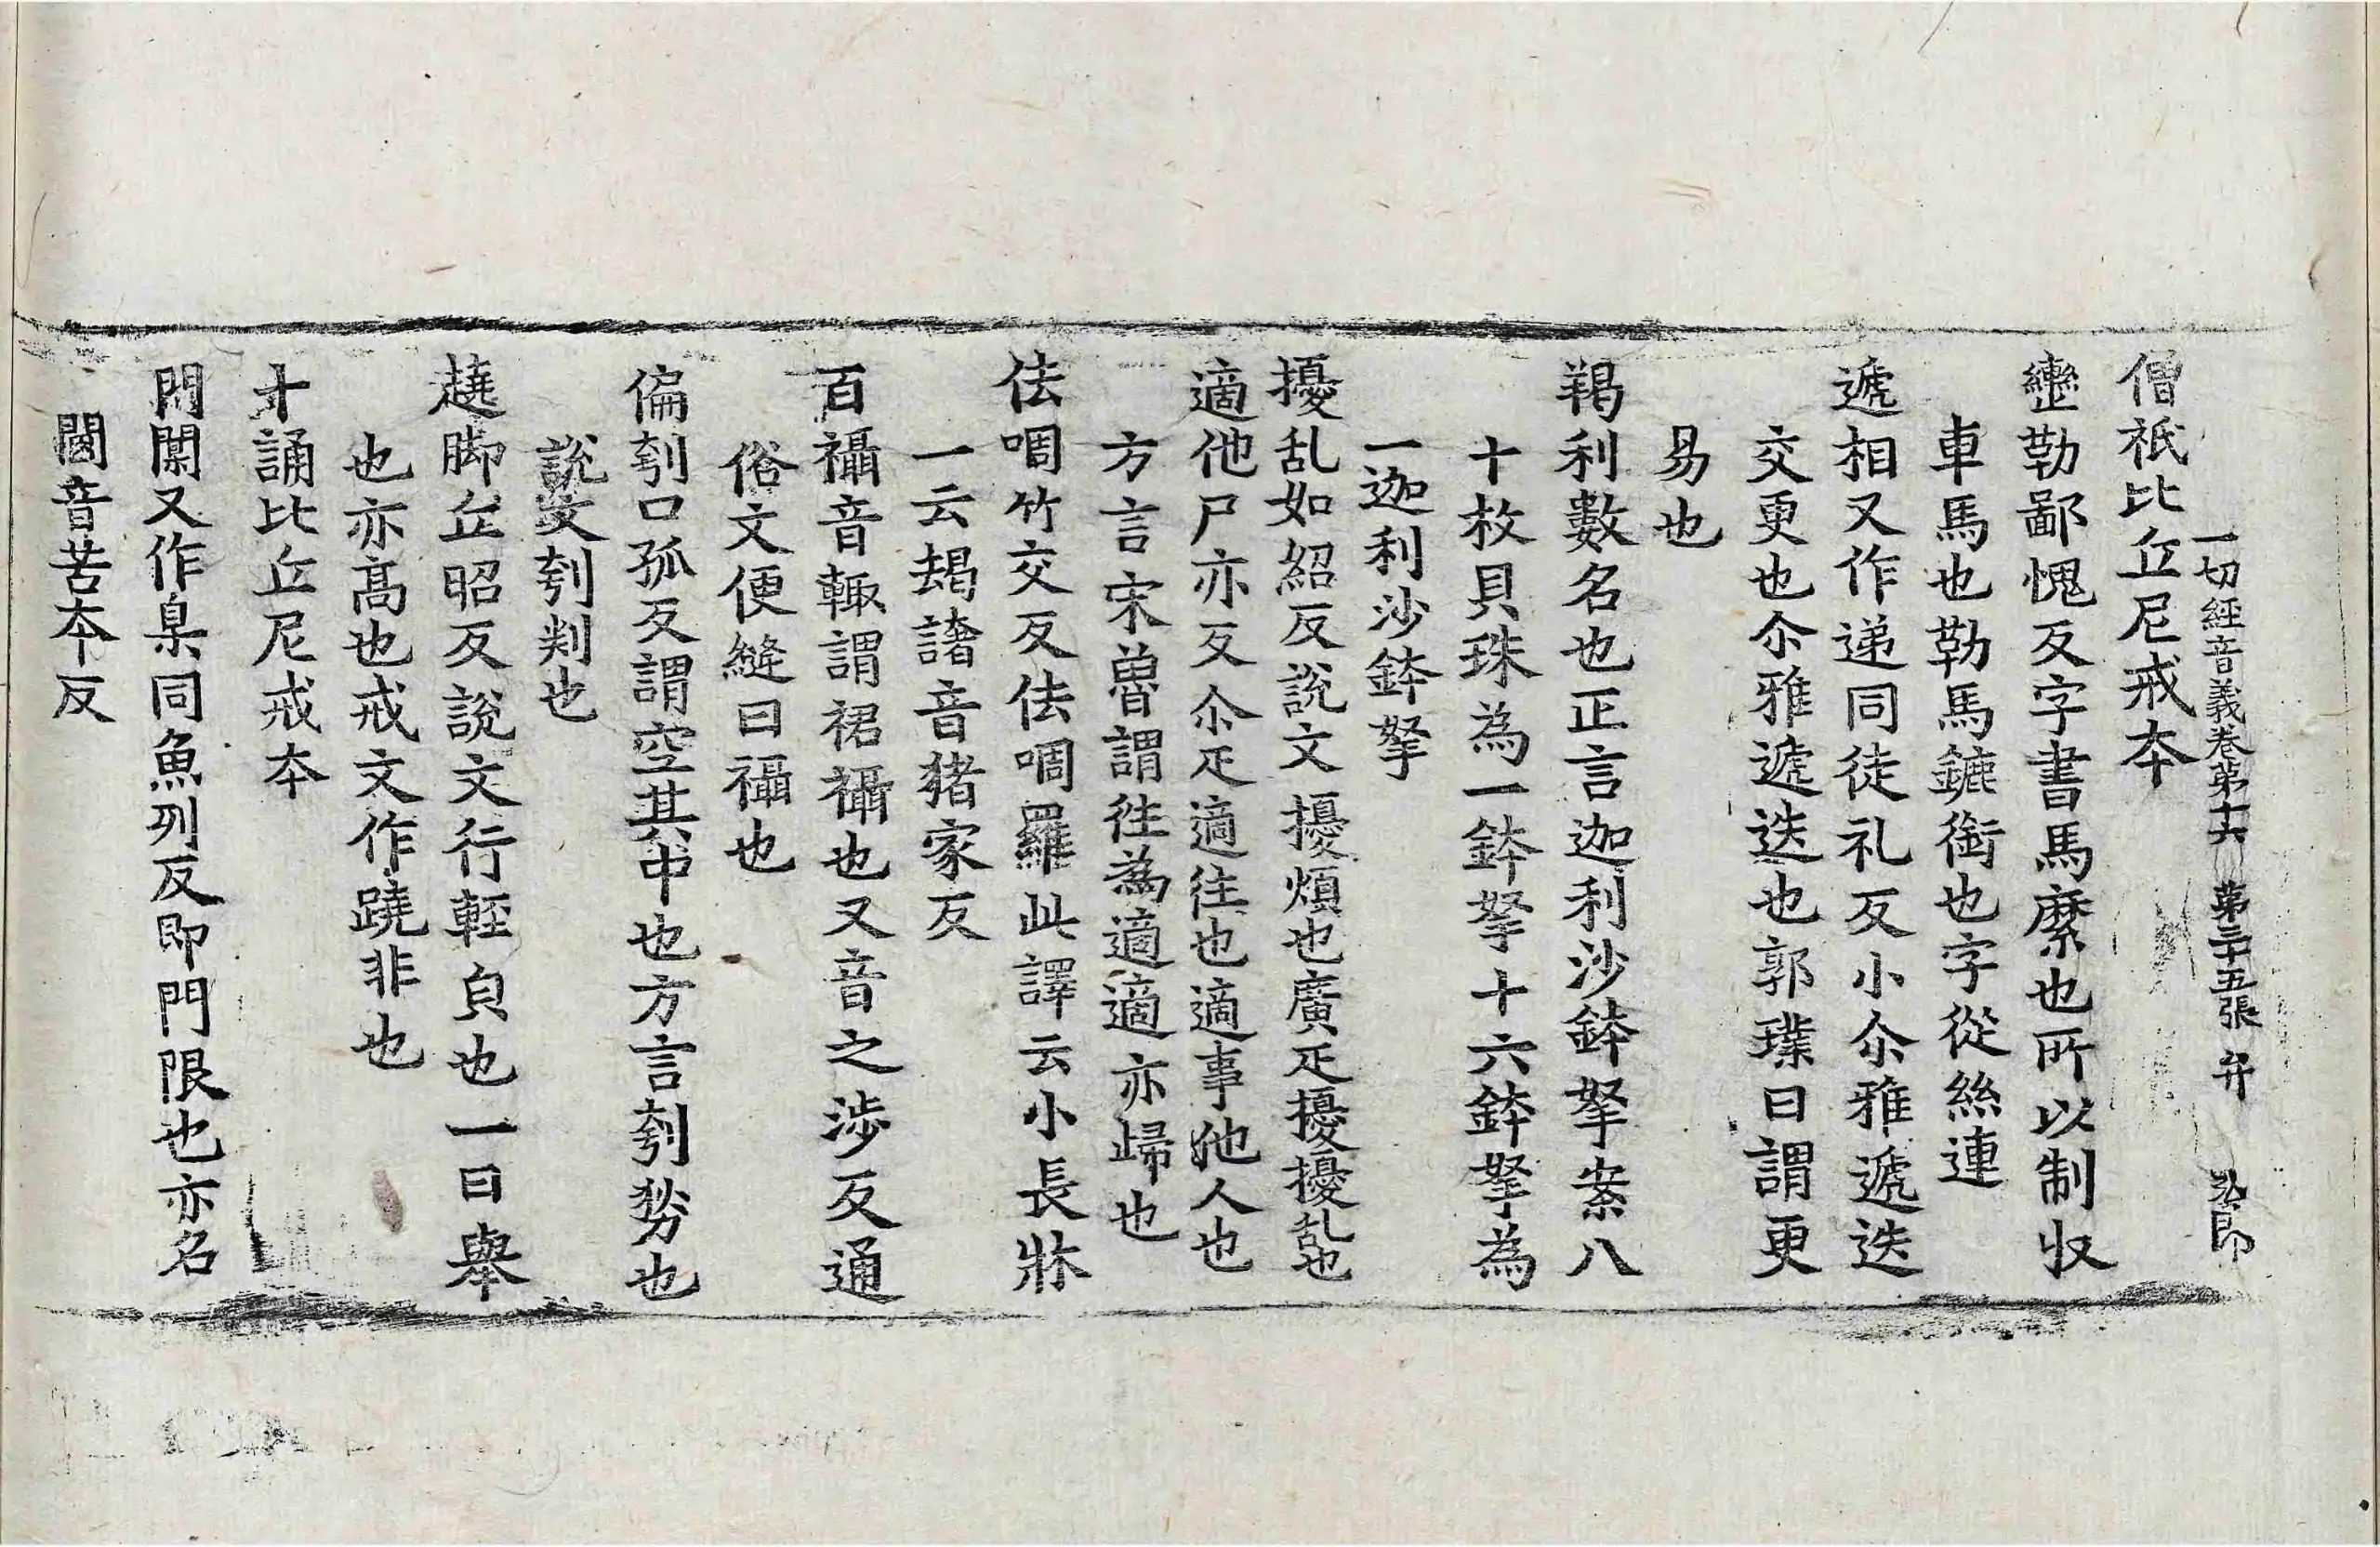 一切經音義卷第十六 第三十五張 弁
僧祇比丘尼戒本
轡勒鄙愧反字書馬縻也所以制収
車馬也勒馬鑣銜也字從絲連
遞相又作递同徒礼反小尒雅遞迭
交更也尒雅遞迭也郭璞曰謂更
易也
羯利數名也正言迦利沙鉢拏案八
十枚貝珠為一鉢拏十六鉢拏為
一迦利沙鉢拏
擾乱如紹反說文擾煩也廣疋擾擾乱也
適他尸亦反尒疋適往也適事他人也
方言宋魯謂往為適適亦歸也
佉啁竹交反佉啁羅此譯云小長牀
一云朅譇音猪家反
百襵音輙謂裙襵也又音之涉反通
俗文便縫曰襵也
偏刳口孤反謂空其中也方言刳㔣也
說文刳判也
趬脚丘昭反說文行輕皃也一曰舉
也亦髙也戒文作蹺非也
十誦比丘尼戒本
門闑又作臬同魚列反即門限也亦名
閫音苦本反